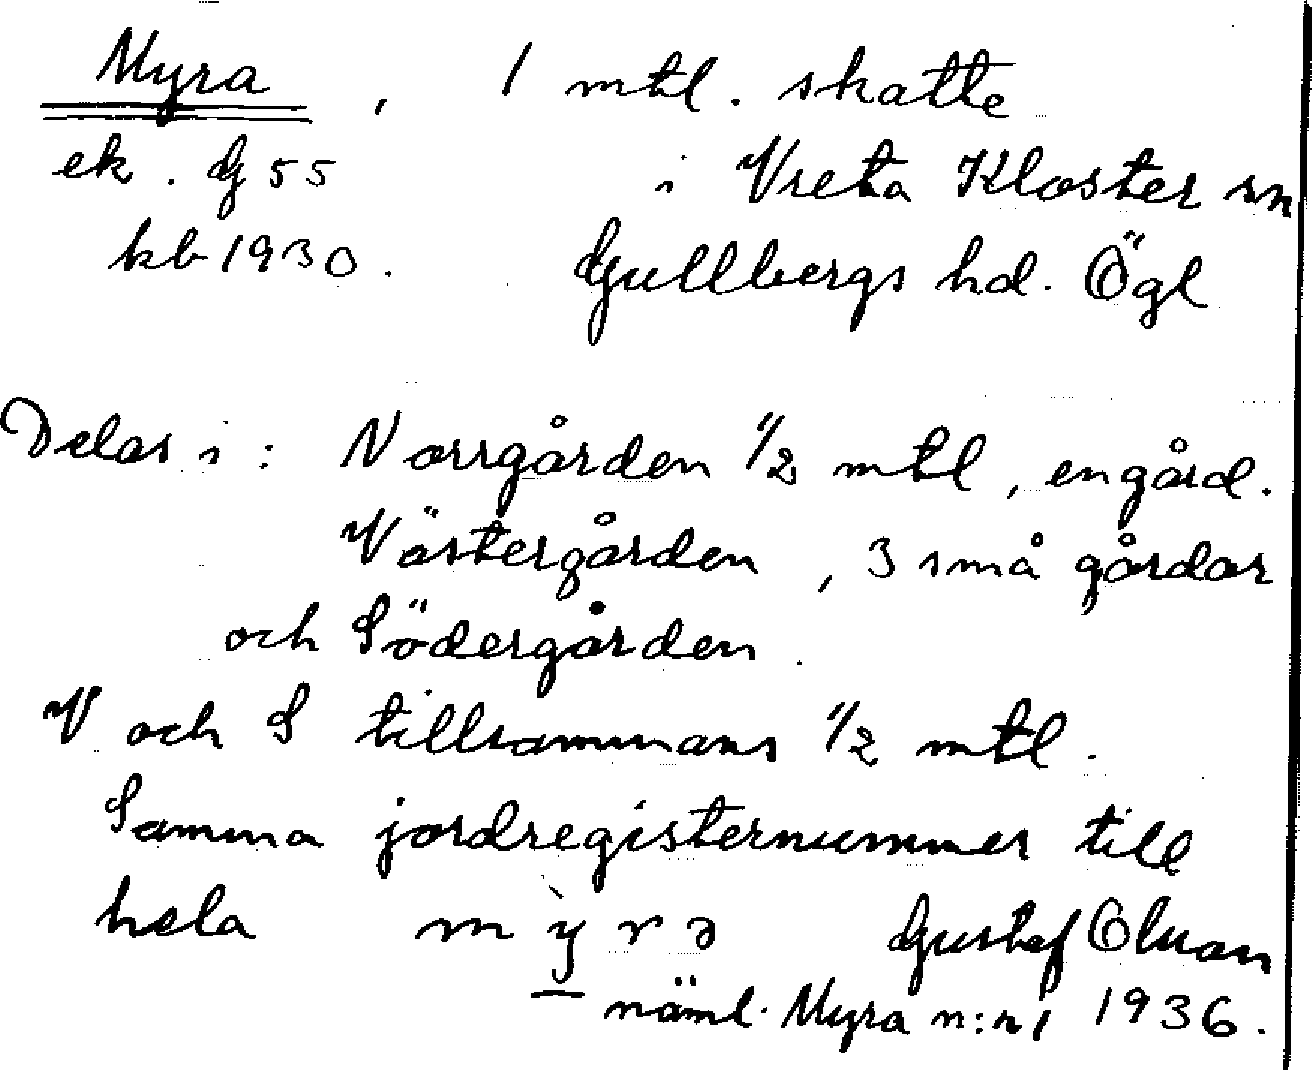 Myra, 1 mtl. skatte
ek. G 55 i Vreta Kloster sn
kb 1930. Gullbergs hd. Ögl
Delas i: Norrgården 1/2 mtl, en gård.
Västergården, 3 små gårdar
och Södergården.
V och S tillsammans 1/2 mtl.
Samma jordregisternummer till
hela m ỳ r ə Gustaf Olson
näml. Myra n:r 1 1936.